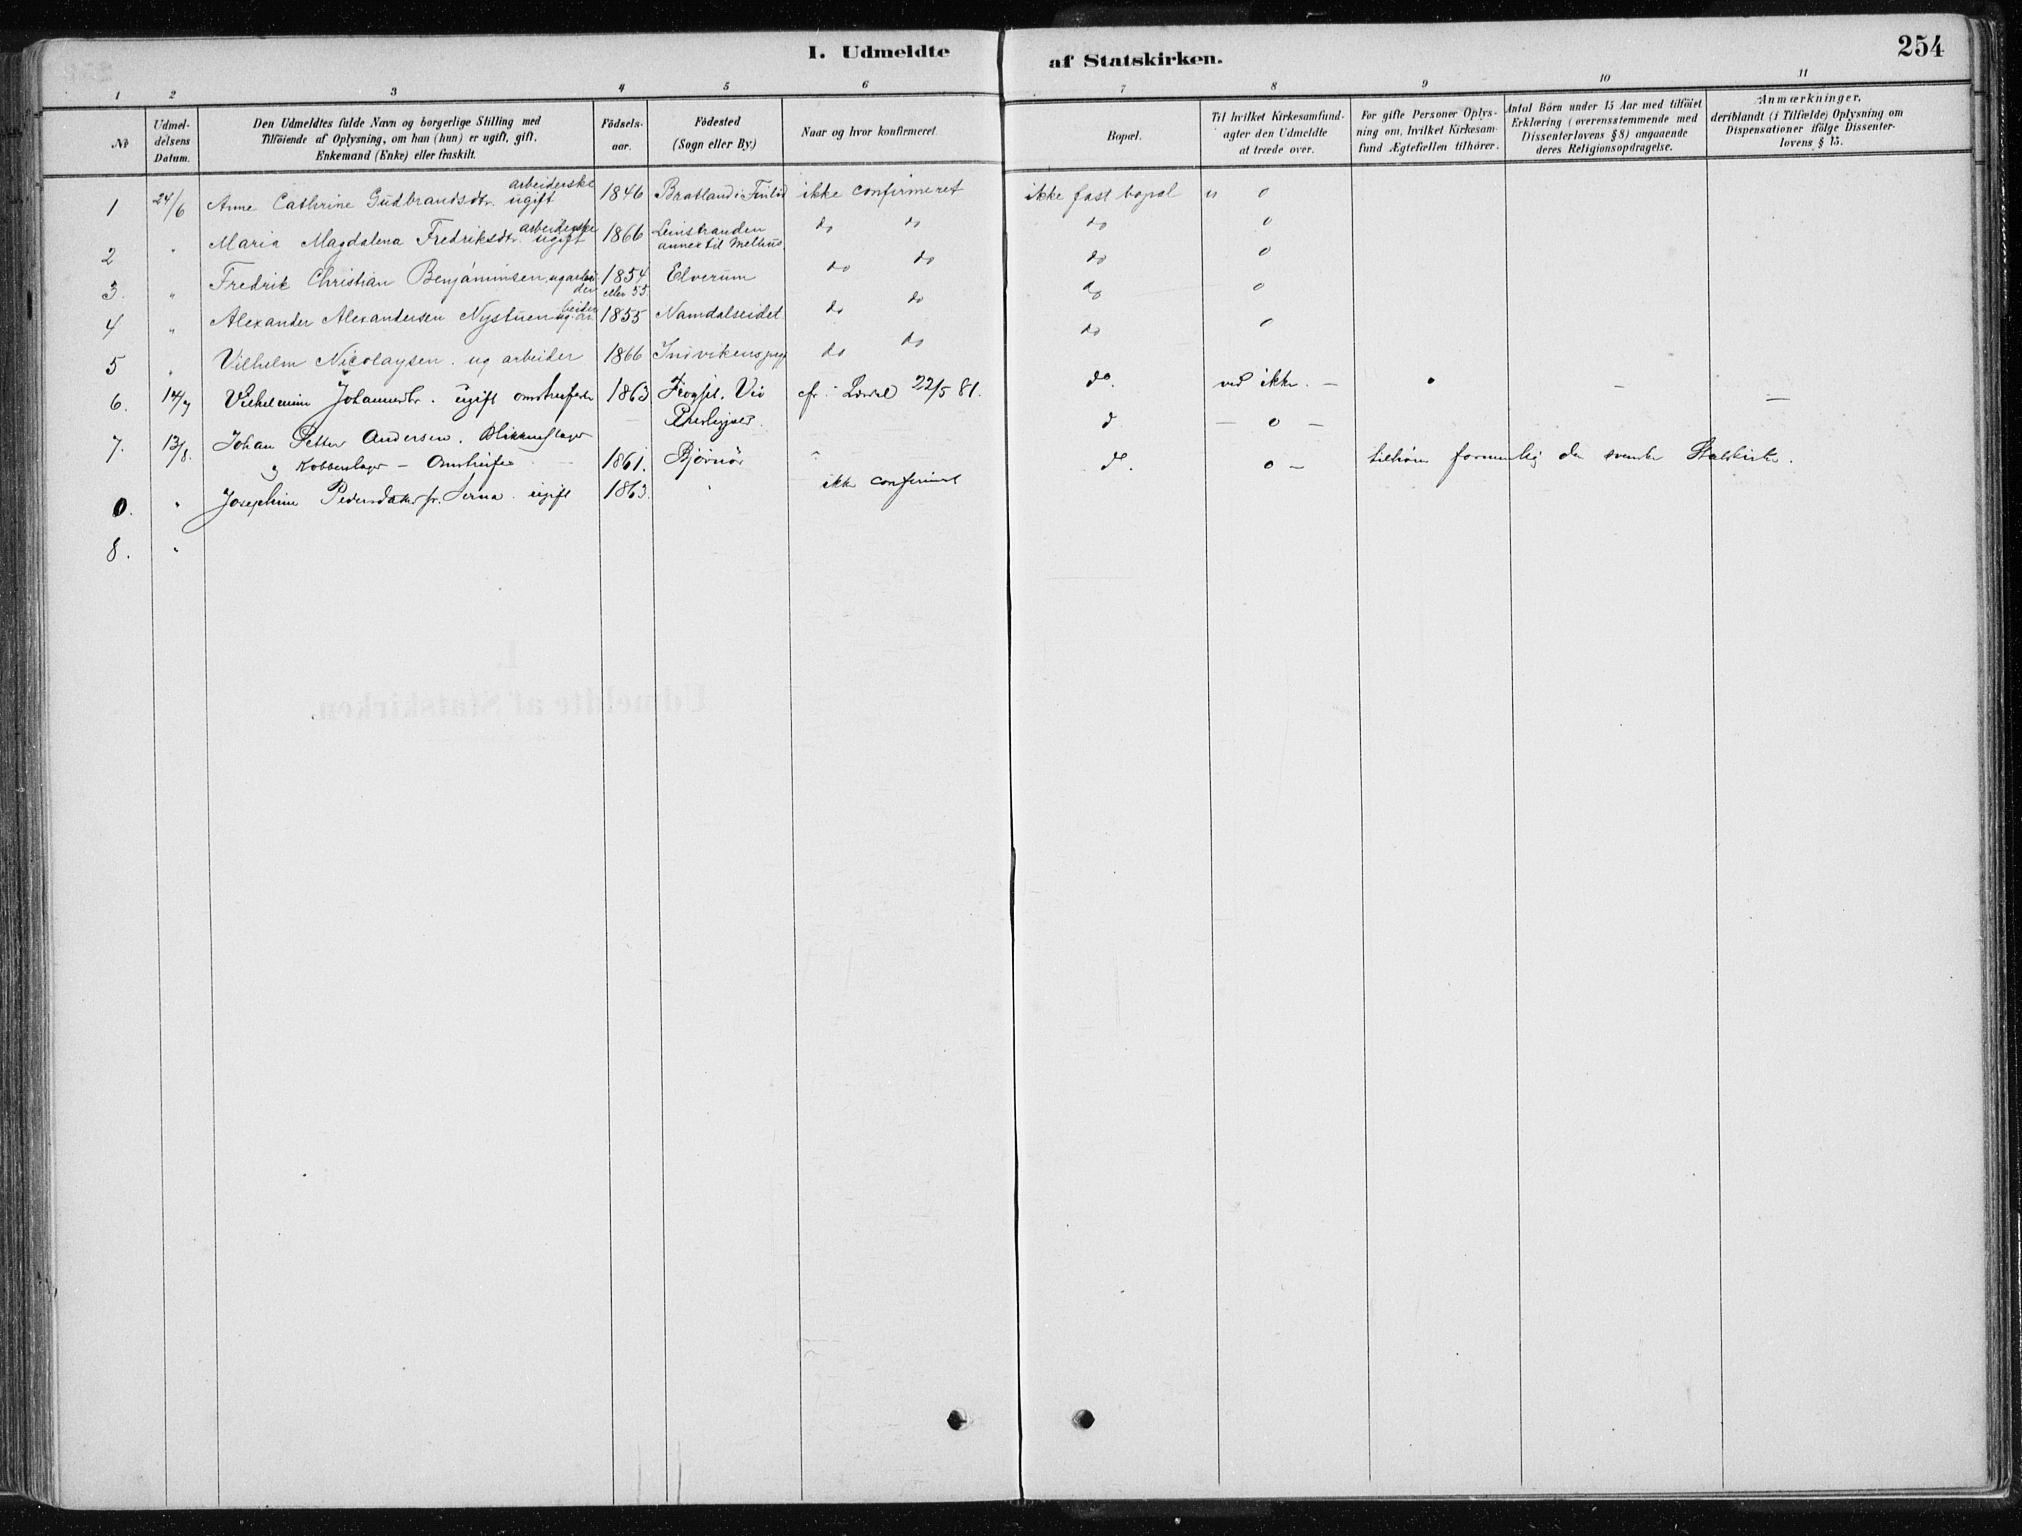 I. Udmeldte af Statskirken. 254
1 2 3 4 5 6 7 8 9 10 11
№
Udmeldelsens Datum.
Den Udmeldtes fulde Navn og borgerlige Stilling med Tilföiende af Oplysning, om han (hun) er ugift, gift, Enkemand (Enke) eller fraskilt.
Födselsaar.
Födested (Sogn eller By.)
Naar og hvor konfirmeret.
Bopæl.
Til hvilket Kirkesamfund agter den Udmeldte at træde over.
For gifte Personer Oplysning om, hvilket Kirkesamfund Ægtefællen tilhörer.
Antal Börn under 15 Aar med tilföiet Erklæring (overensstemmende med Dissenterlovens § 8) angaaende deres Religionsopdragelse.
Anmærkninger, deriblandt (i Tilfælde) Oplysning om Dispensationer ifölge Dissenterlovens § 15.
1 24/6 Anne Cathrine Gudbrandsdtr. arbeiderske ugift 1846 Bratland i ikke confirmeret ikke fast bopæl " 0
2 " Maria Magdalena Fredriksdtr. arbeiderske ugift 1866 Leinstranden annex til Melhus do do do 0
3. " Fredrik Christian Benjaminsen, ug arbeider 1854 eller 55 Elverum do do do 0
4 " Alexander Alexandersen Nystuen ug arbeider 1855 Namdalseidet do do do 0
5 " Vilhelm Nicolaysen. ug arbeider 1866 Indvikens pgj do do do 0
6. 14/7 Vilhelmine Johannesdtr. ugift 1863 Vio cfr. i 22/5 81. do. ved ikke. –
7. 13/8. Johan Petter Andersen. Blikkenslager Præstegjeld. d – 0 –
og Kobberslager – Omstreifer 1861. Bjørnør " do. 0 – tilhører formentlig den svenske Statskirke.
0. " Josephine Pedersdatter ugift 1863. " ikke confirmeret
8. "